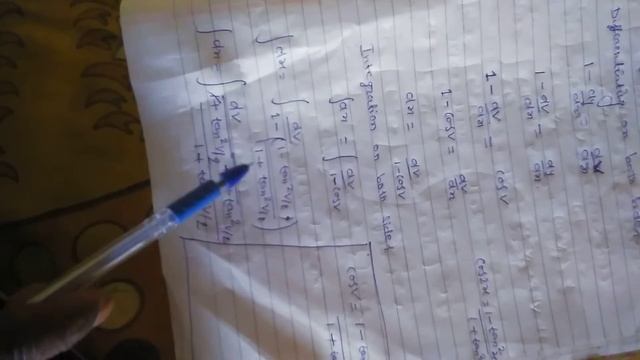 Differentiating on both sides
1 - dy/dx = dv/dx
1 - dv/dx = dy/dx
1 - dv/dx = cosv
1 - cosv = dv/dx
dx = dv/1-cosv
Integration on both sides
∫dx = ∫ dv/1-cosv
∫dx = ∫ dv/1-(1-tan²v/2 / 1+tan²v/2)
∫dx = ∫ dv/1+tan²v/2
cos2x = 1-tan²x
cosv = 1-